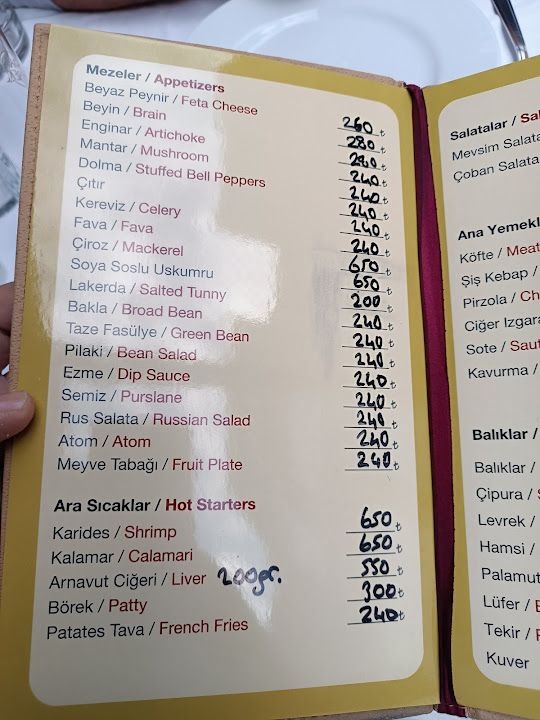 Mezeler / Appetizers
Beyaz Peynir / Feta Cheese 260 ₺
Beyin / Brain 280 ₺
Enginar / Artichoke 240 ₺
Mantar / Mushroom 240 ₺
Dolma / Stuffed Bell Peppers 240 ₺
Çıtır 240 ₺
Kereviz / Celery 240 ₺
Fava / Fava 240 ₺
Çiroz / Mackerel 650 ₺
Soya Soslu Uskumru 650 ₺
Lakerda / Salted Tunny 200 ₺
Bakla / Broad Bean 240 ₺
Taze Fasülye / Green Bean 240 ₺
Pilaki / Bean Salad 240 ₺
Ezme / Dip Sauce 240 ₺
Semiz / Purslane 240 ₺
Rus Salata / Russian Salad 240 ₺
Atom / Atom 240 ₺
Meyve Tabağı / Fruit Plate 240 ₺
Ara Sıcaklar / Hot Starters
Karides / Shrimp 650 ₺
Kalamar / Calamari 650 ₺
Arnavut Ciğeri / Liver 200gr. 550 ₺
Börek / Patty 300 ₺
Patates Tava / French Fries 240 ₺
Salatalar /
Mevsim Salata
Çoban Salata
Ana Yemekl
Köfte / Meat
Şiş Kebap /
Pirzola / Ch
Ciğer Izgara
Sote / Saut
Kavurma /
Balıklar /
Balıklar /
Çipura /
Levrek /
Hamsi /
Palamut
Lüfer /
Tekir /
Kuver